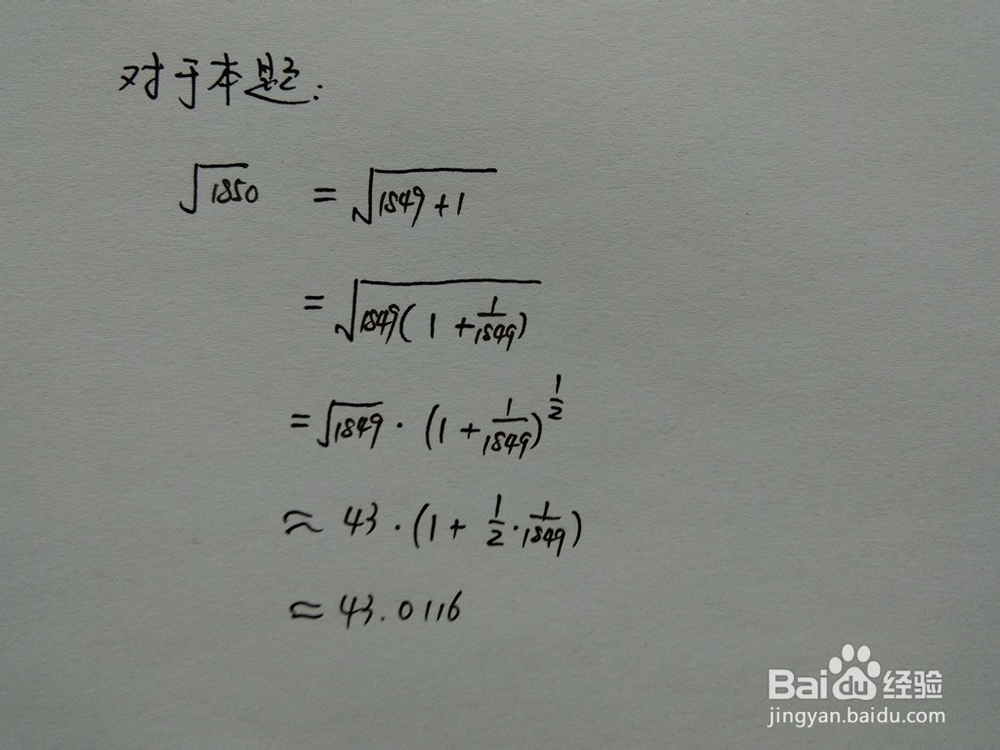 对于本题:
√1850 = √(1849+1)
= √(1849(1+1/1849))
= √1849·(1+1/1849)^(1/2)
≈ 43·(1+1/2·1/1849)
≈ 43.0116
Baidu经验
jingyan.baidu.com